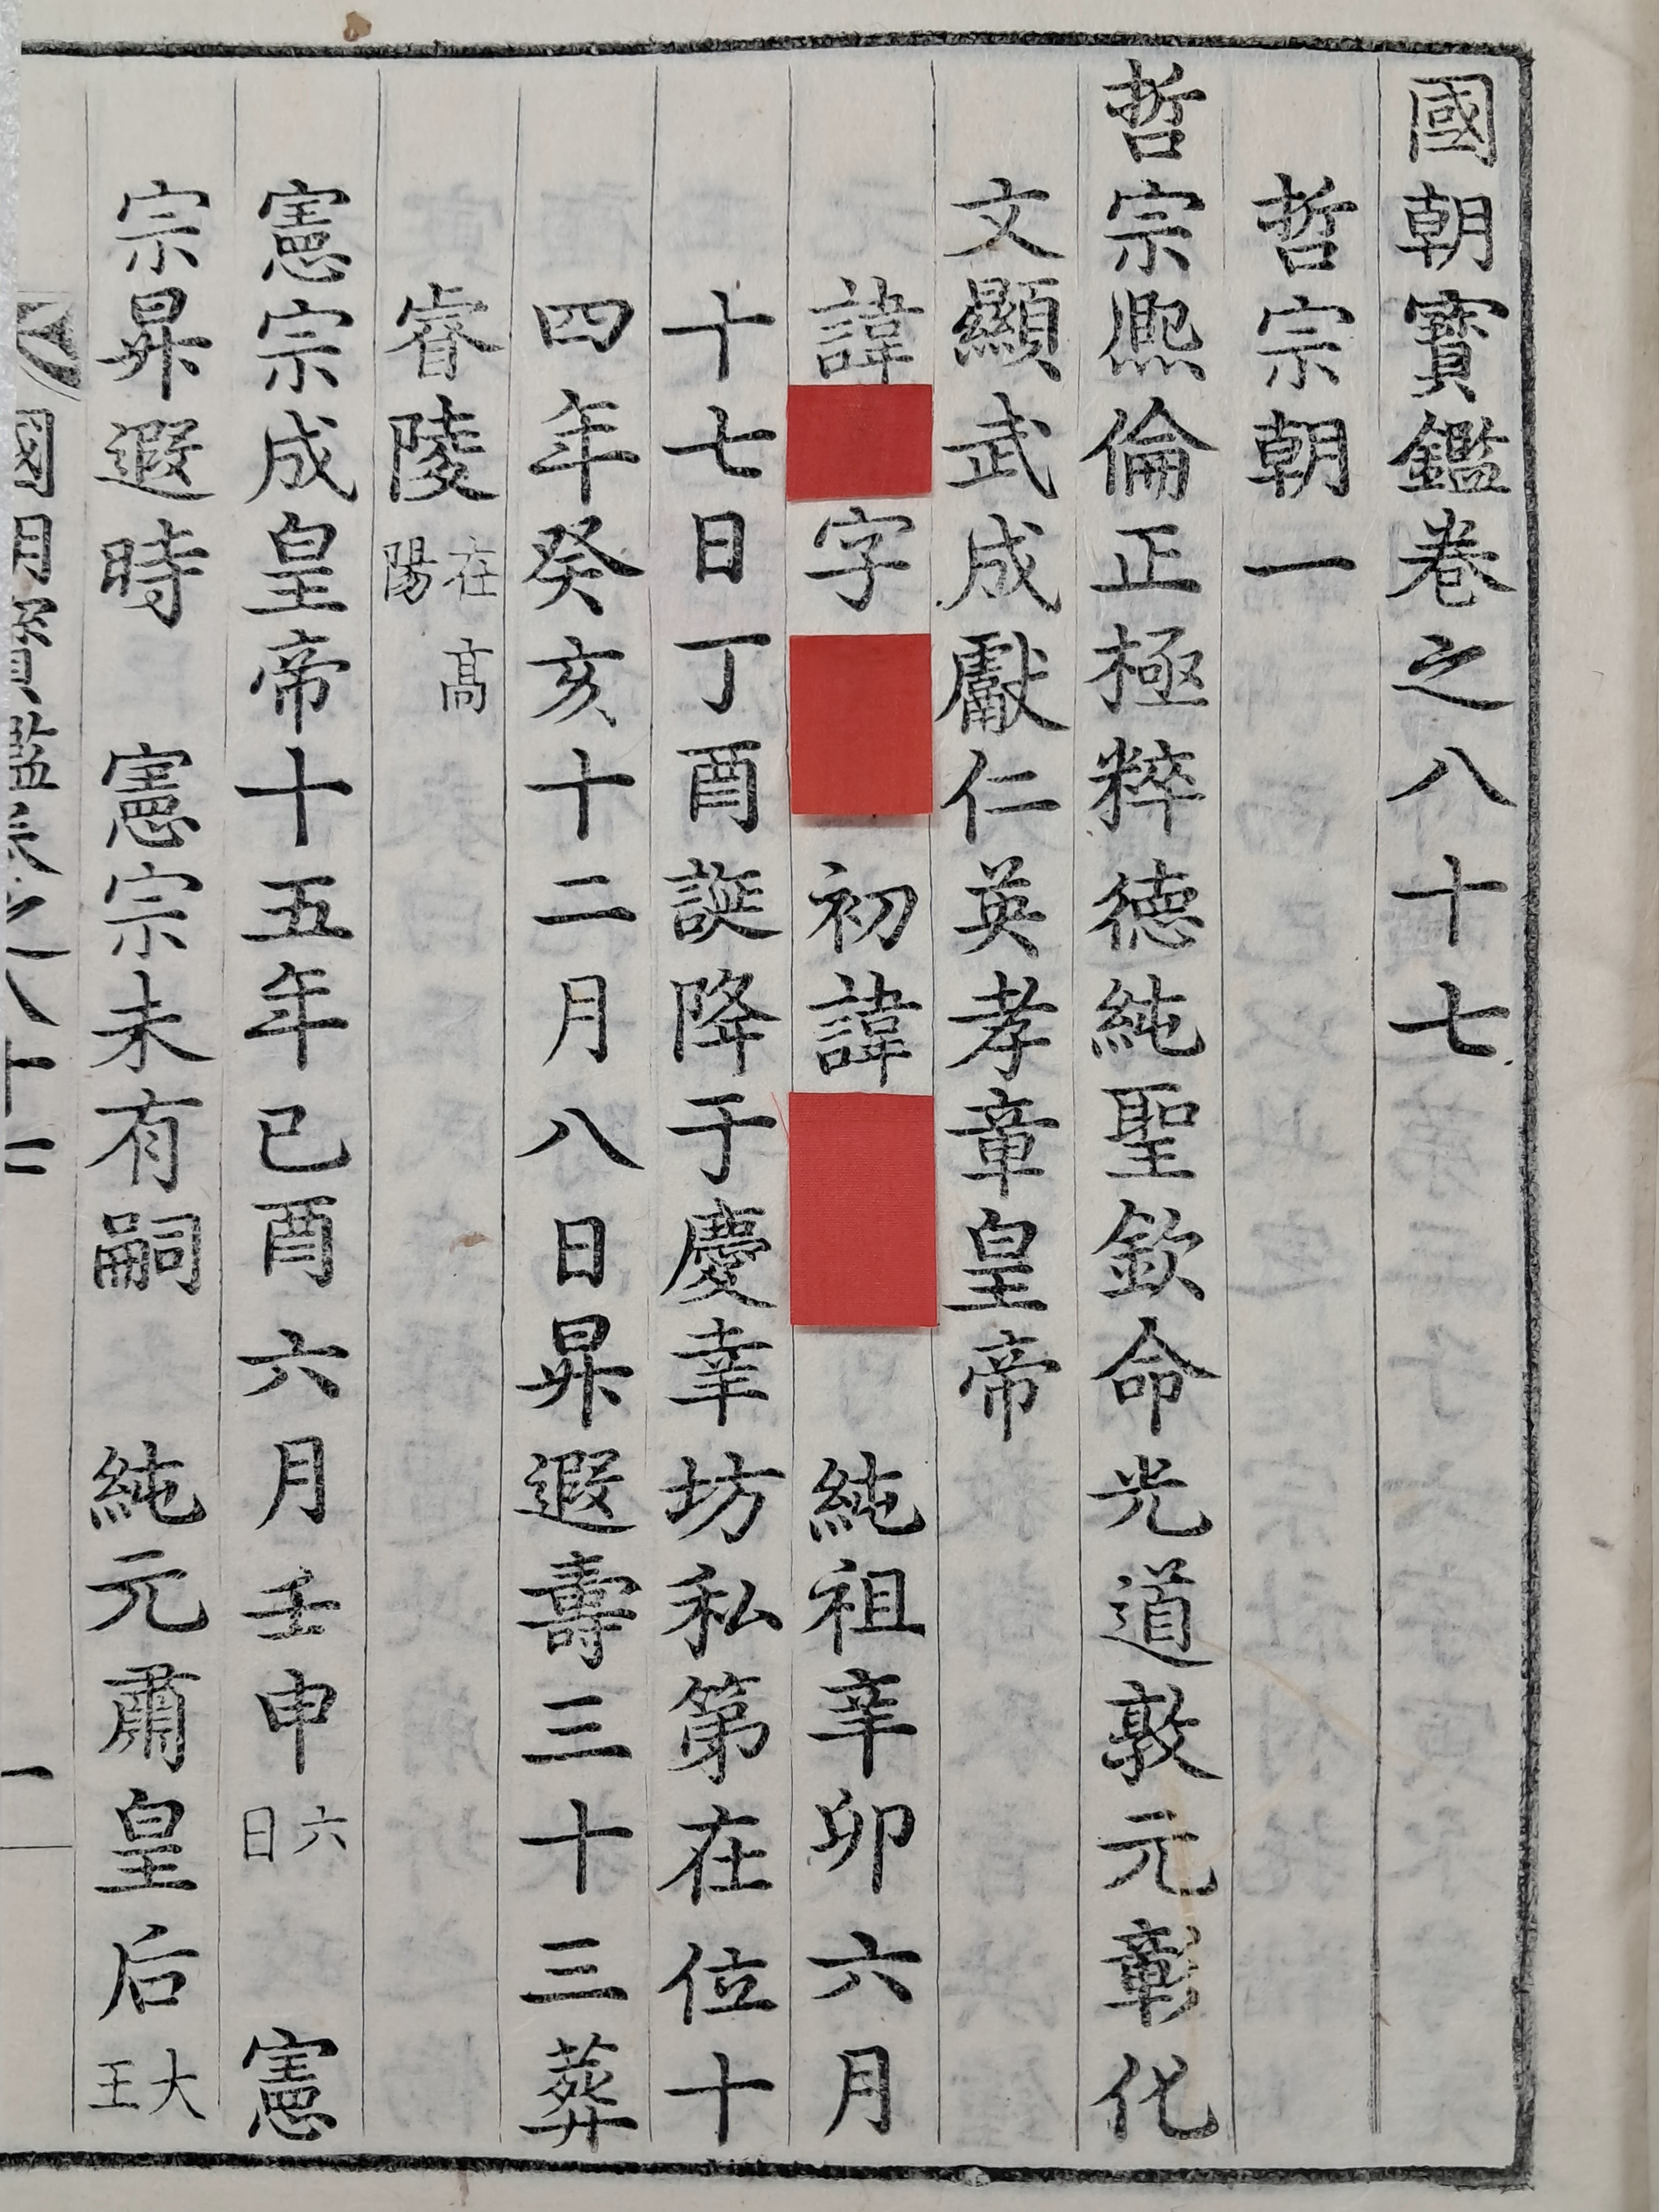 國朝寶鑑卷之八十七
哲宗朝一
哲宗熙倫正極粹德純聖欽命光道敦元彰化
文顯武成獻仁英孝章皇帝
諱 字 初諱 純祖辛卯六月
十七日丁酉誕降于慶幸坊私第在位十
四年癸亥十二月八日昇遐壽三十三葬
睿陵在高陽
憲宗成皇帝十五年己酉六月壬申六日 憲
宗昇遐時 憲宗未有嗣 純元肅皇后大王
國朝寶鑑卷之八十七 一